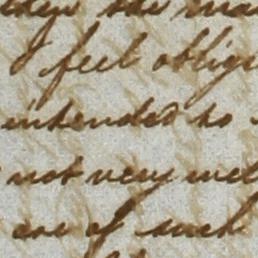 the
I feel oblig
intended to
not very wel
are of such